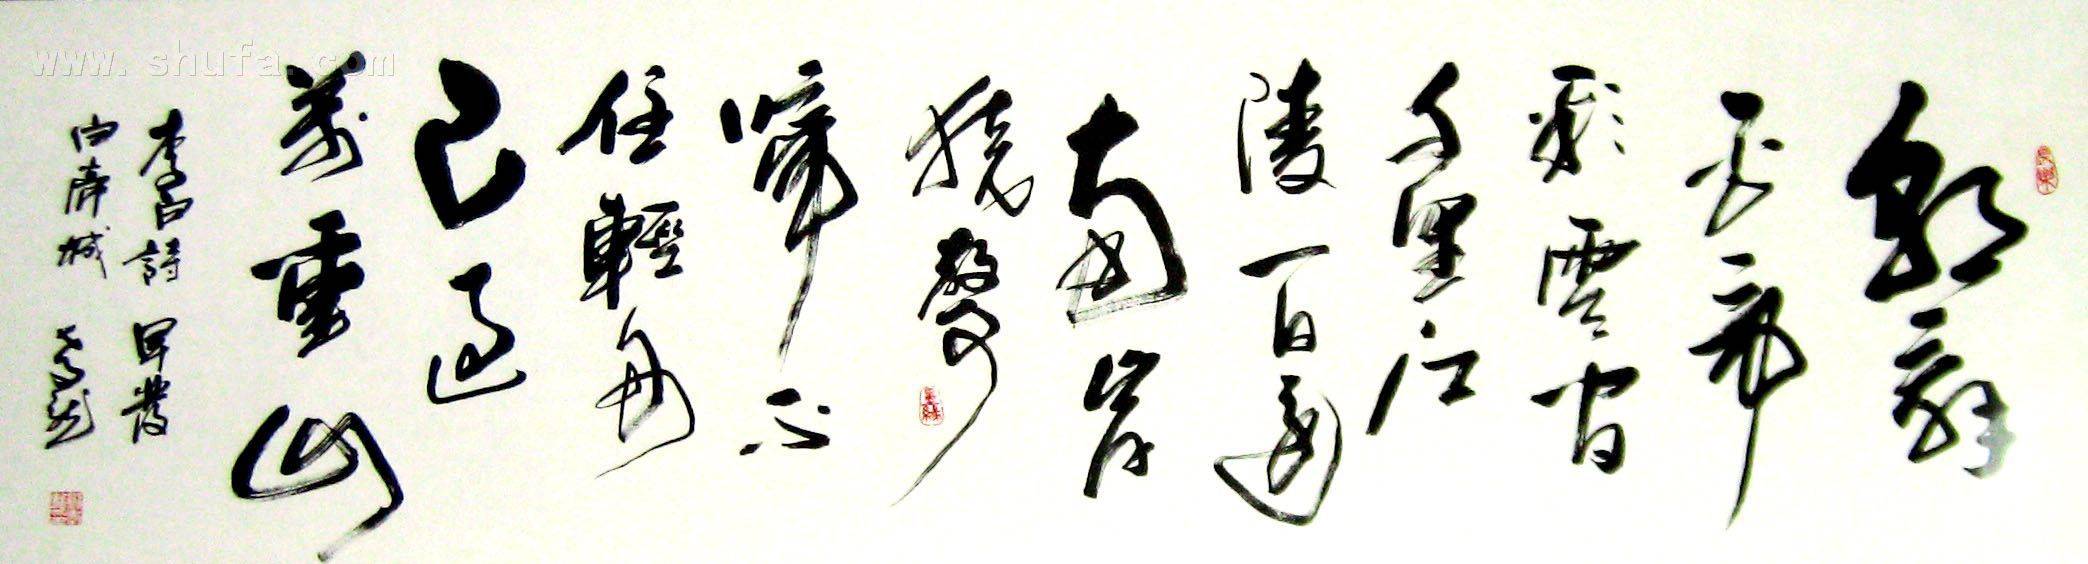 朝辭
白帝
彩雲間
千里江
陵一日還
兩岸
猿聲
啼不
住輕舟
已過
萬重山
李白詩 早發
白帝城
www.shufa.com